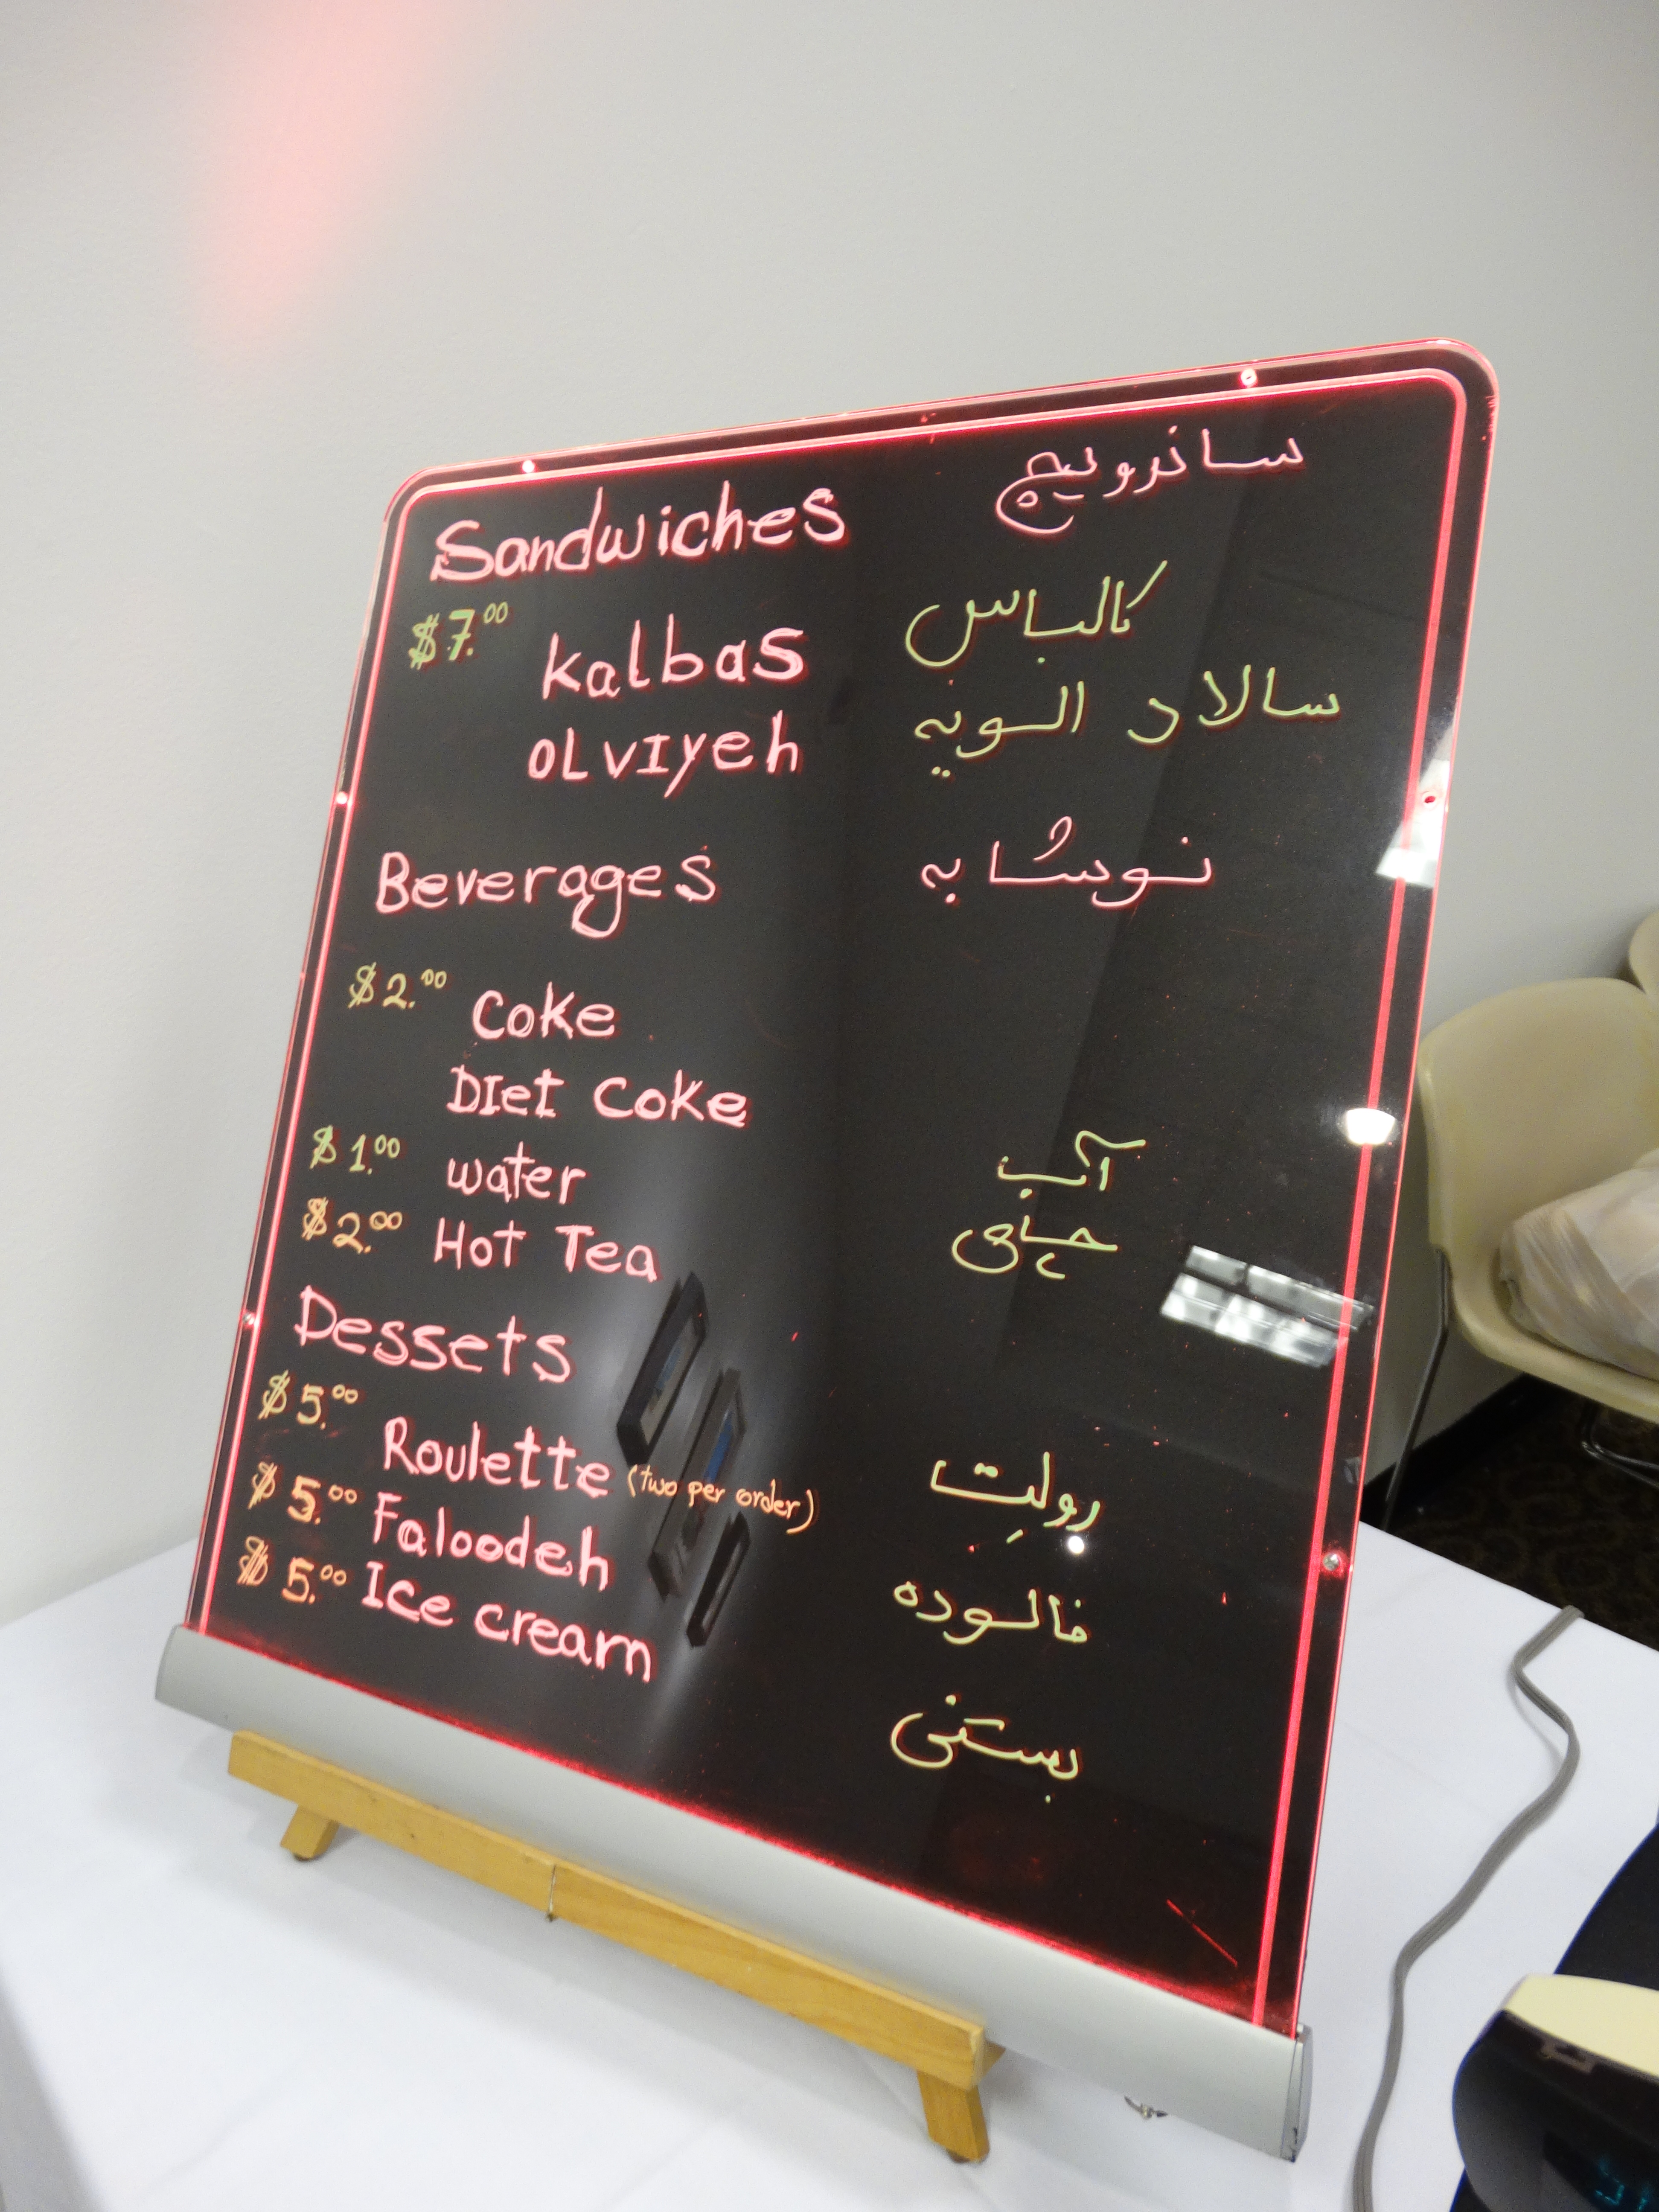 Sandwiches ساندویچ
$7.00 Kalbas کالباس
OLVIyeh سالاد الویه
Beverages نوشابه
$2.00 Coke
DIet Coke
$1.00 water آب
$2.00 Hot Tea چای
Dessets
$5.00 Roulette (two per order) رولِت
$5.00 Faloodeh فالوده
$5.00 Ice cream بستنی